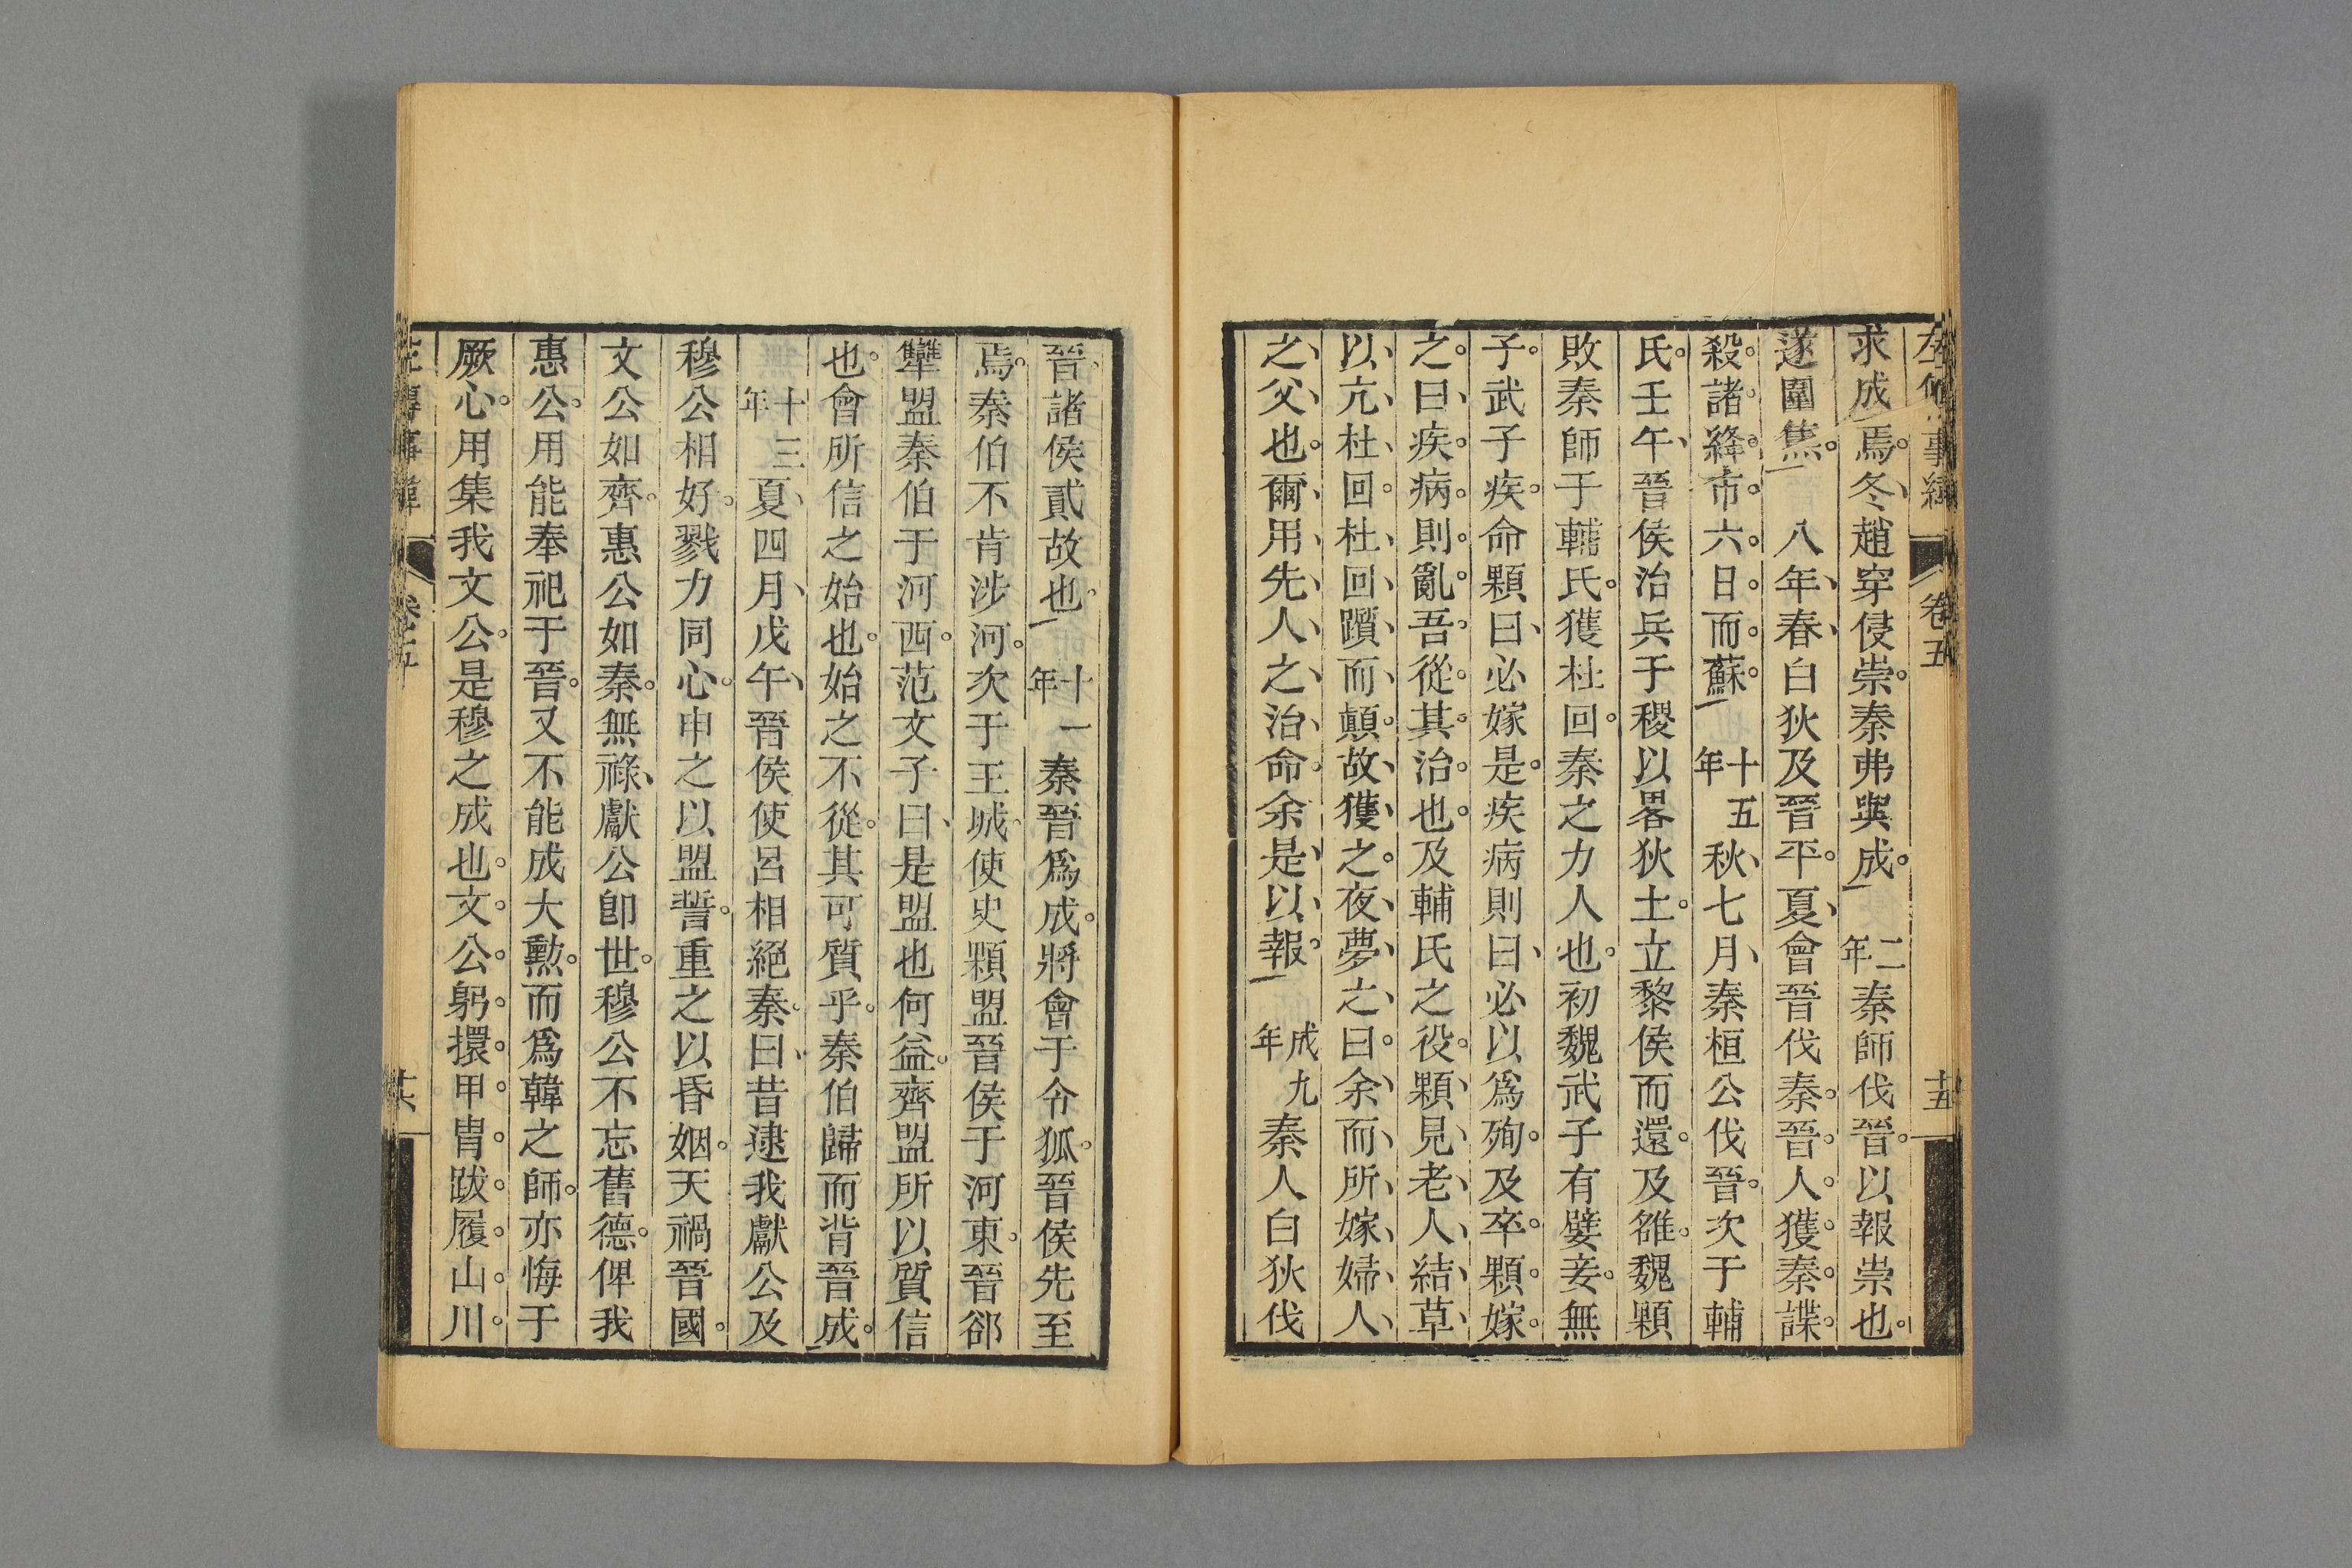 左傳事緯 卷五 十五
求成焉冬趙穿侵崇秦弗與成二年秦師伐晉以報崇也
遂圍焦八年春白狄及晉平夏會晉伐秦晉人獲秦諜
殺諸絳市六日而蘇十五年秋七月秦桓公伐晉次于輔
氏壬午晉侯治兵于稷以畧狄土立黎侯而還及雒魏顆
敗秦師于輔氏獲杜回秦之力人也初魏武子有嬖妾無
子武子疾命顆曰必嫁是疾病則曰必以爲殉及卒顆嫁
之曰疾病則亂吾從其治也及輔氏之役顆見老人結草
以亢杜回杜回躓而顛故獲之夜夢之曰余而所嫁婦人
之父也爾用先人之治命余是以報成九年秦人白狄伐
晉諸侯貳故也十一年秦晉爲成將會于令狐晉侯先至
焉秦伯不肯涉河次于王城使史顆盟晉侯于河東晉郤
犫盟秦伯于河西范文子曰是盟也何益齊盟所以質信
也會所信之始也始之不從其可質乎秦伯歸而背晉成
十三年夏四月戊午晉侯使呂相絕秦曰昔逮我獻公及
穆公相好戮力同心申之以盟誓重之以昏姻天禍晉國
文公如齊惠公如秦無祿獻公卽世穆公不忘舊德俾我
惠公用能奉祀于晉又不能成大勲而爲韓之師亦悔于
厥心用集我文公是穆之成也文公躬擐甲胄跋履山川
左傳事緯 卷五 十六